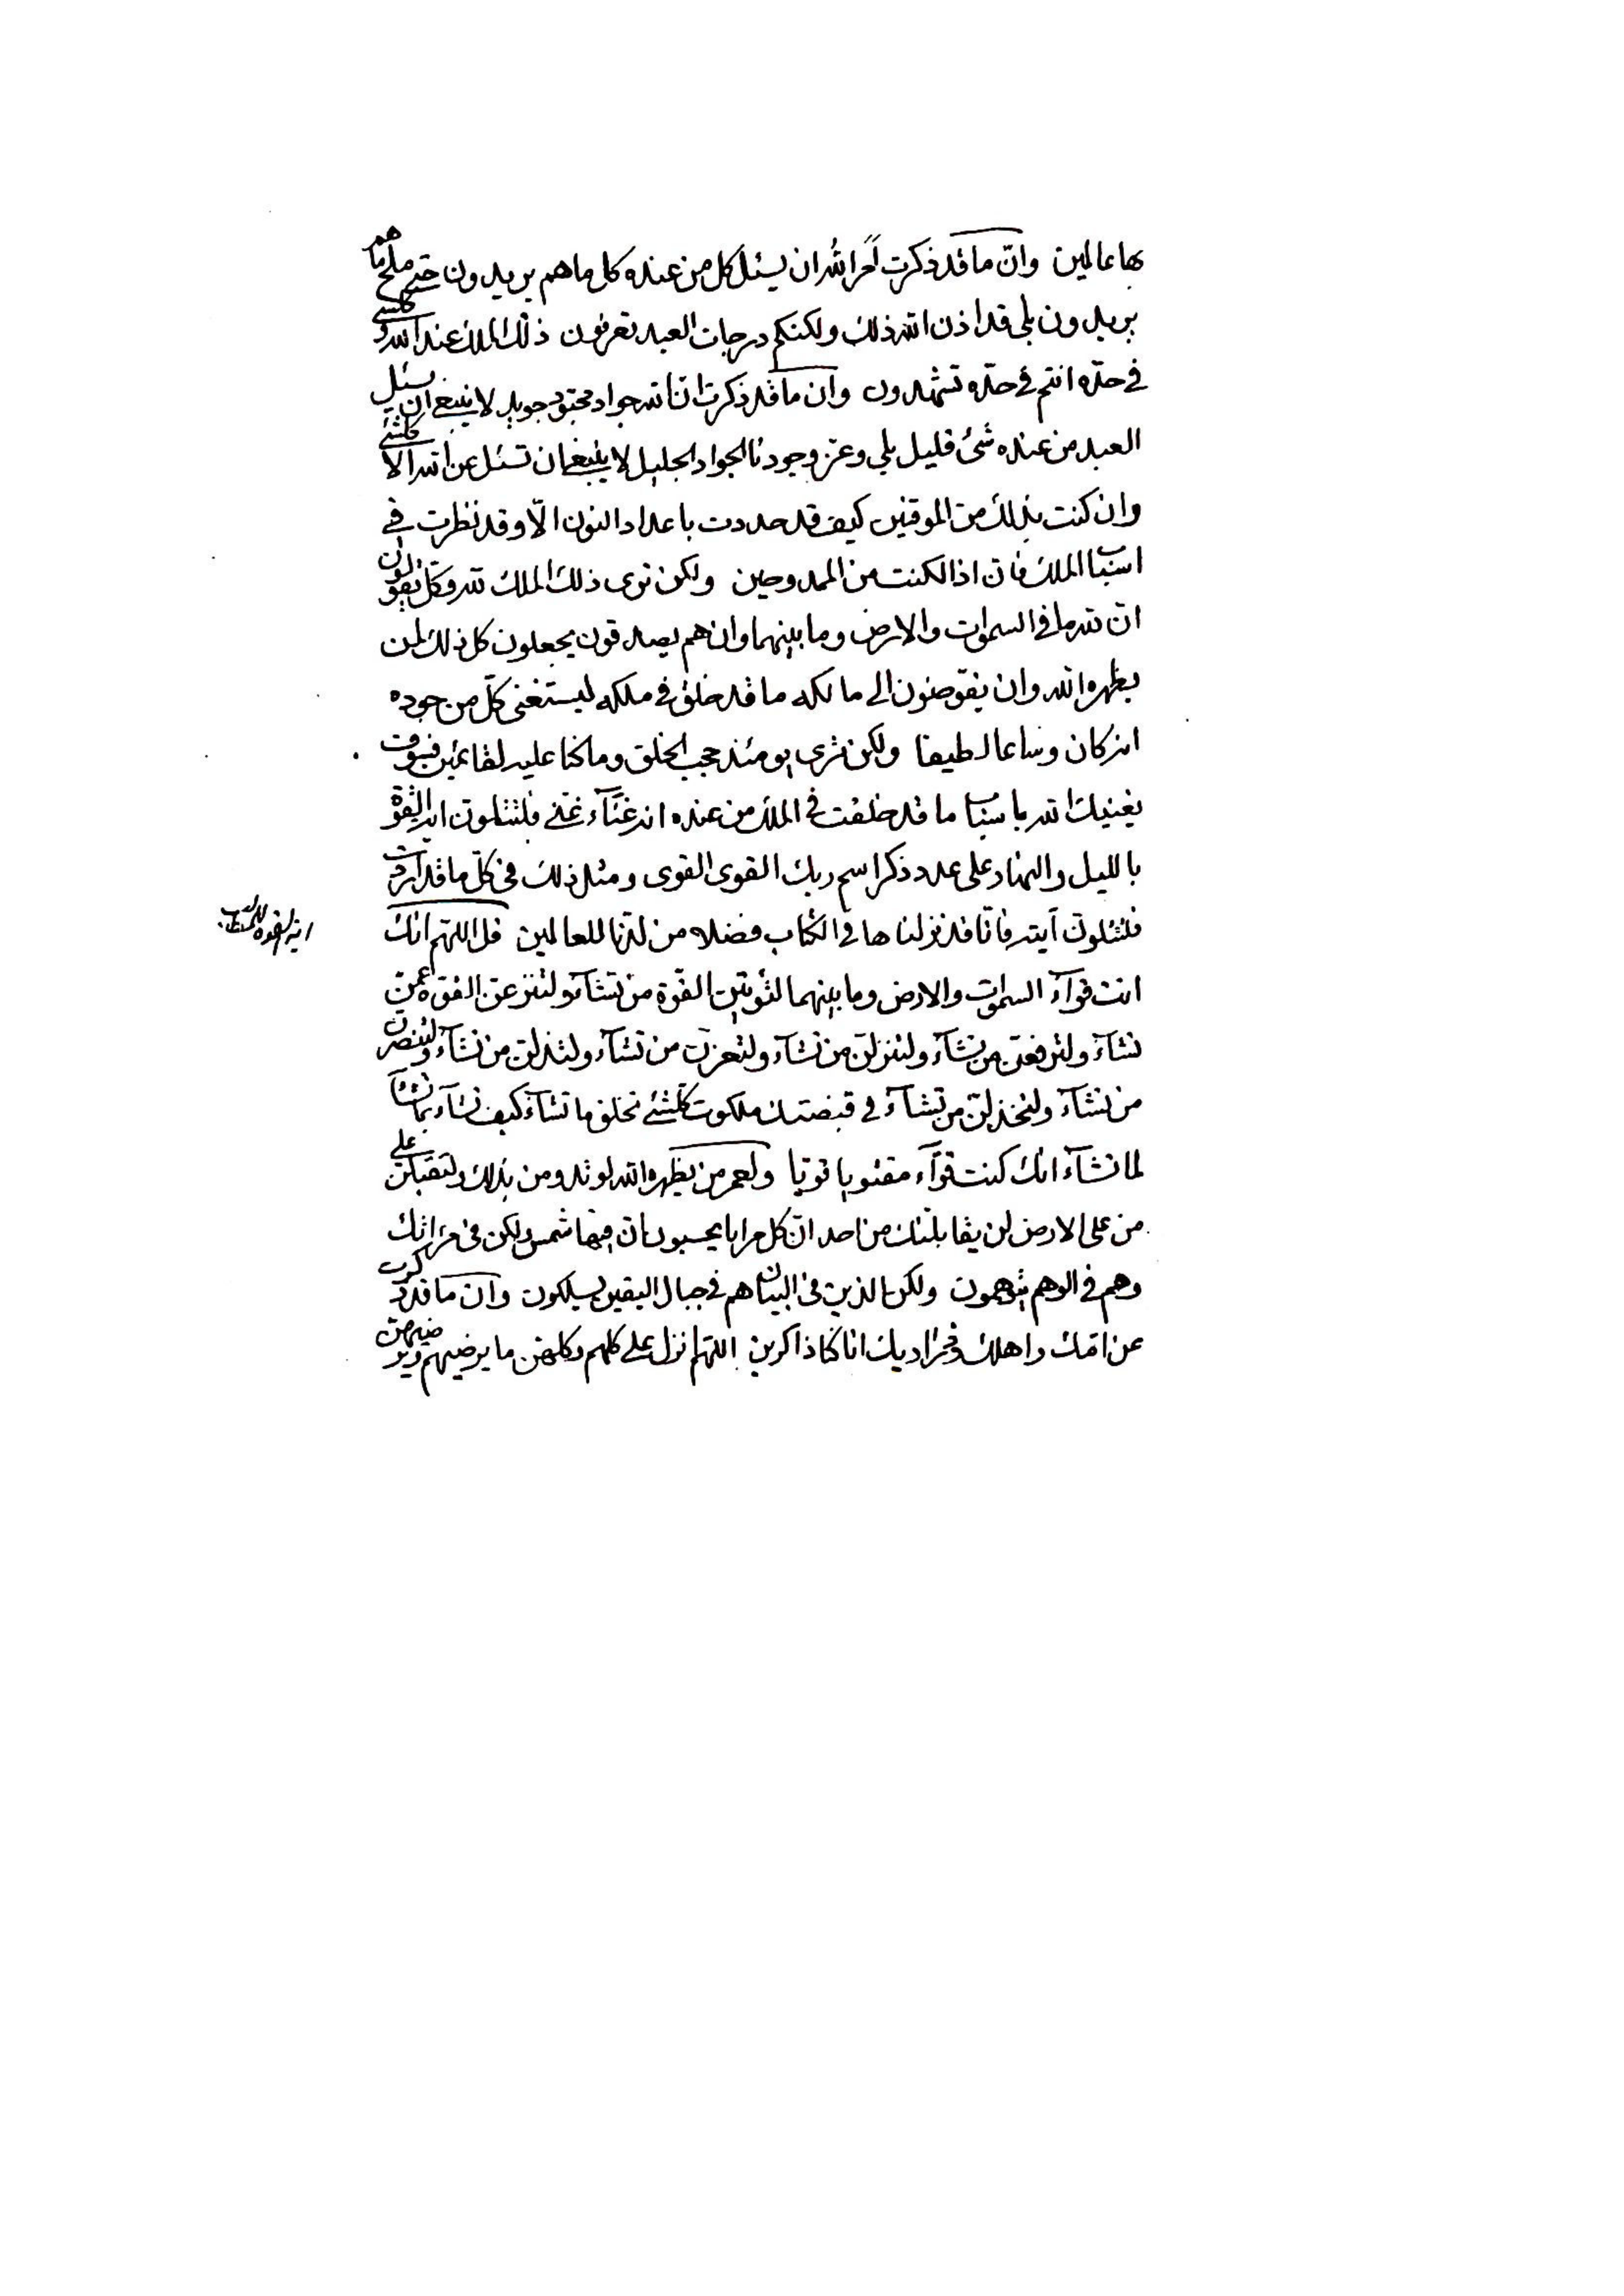 بها عالمين وانّ ما قد ذكرت امر الله ان يسئل كل من عنده كل ما هم يريدون حتى ملح ما هم
يريدون بلى قد اذن الله ذلك ولكنكم درجات العبد تعرفون ذلك الملك عند الله وكلشئ
في حدّه انتم في حدّه تشهدون وان ما قد ذكرت انّ الله جواد لا ينبغي ان يسئل
العبد من عنده شئ قليل بلي وعز وجود ربنا الجواد الجليل لا ينبغي ان تسئل عن الله الا كلشئ
وان كنت بذلك من الموقنين كيف قد حددت باعداد النون الّا وقد نظرت في
اسباب الملك فان اذا لكنت من الممدوحين ولكن ترى ذلك الملك لله وكل يقولون
ان لله ما في السموات والارض وما بينهما وان هم يصدقون يجعلون كل ذلك لمن
يظهره الله وان يفوّضون الى مالكه ما قد خلق في ملكه ليستغني كلّ من جوده
انه كان وساعا لطيفا ولكن ترى يومئذ حجب الخلق وما كنا عليه لقائمين فسوف
يغنيك الله باسباب ما قد خلقت في الملك من عنده انه غنّآء غني فلتتلون اية القوة
بالليل والنهار على عدد ذكر اسم ربك القوى القوى ومثل ذلك في كلّ ما قد اردت
فلتتلون آيته فانا قد نزلناها في الكتاب فضلا من لدنا للعالمين قل اللهم انك
اية القوة
انت قوآء السموات والارض وما بينهما لتؤتين القوة من تشآء ولتنزعن القوة عمن
تشآء ولترفعن من تشآء ولتنزلن من تشآء ولتعزن من تشآء ولتذلن من تشآء ولتنصرن
من تشآء ولتخذلن من تشآء في قبضتك ملكوت كلشئ تخلق ما تشآء كيف تشآء بما تشآء
لما تشآء انك كنت قوآء مقتويا قويا ولعمر من يظهره الله لو تؤمن بذلك ولتقبلن على
من على الارض لن يقابلنك من احد انّ كل مرايا يحسبون ان فيها شمس ولكن في مرآتك
وهم في الوهم يتوهمون ولكن الذين في البيان هم في جبال اليقين يسلكون وان ما قد ذكرت
عن امّك واهلك وذي قرابتك انا كنا ذاكرين اللهم انزل على كلهم وكلهن ما يرضيهم ويرضيهن